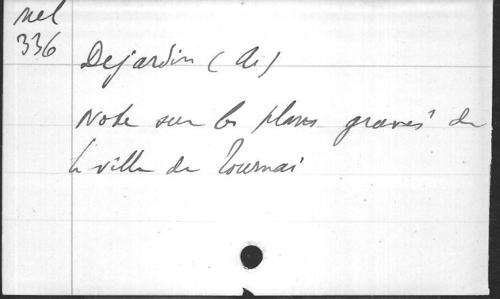 mel
336
Dejardin (Ad)
Note sur les plans gravés de
la ville de Tournai